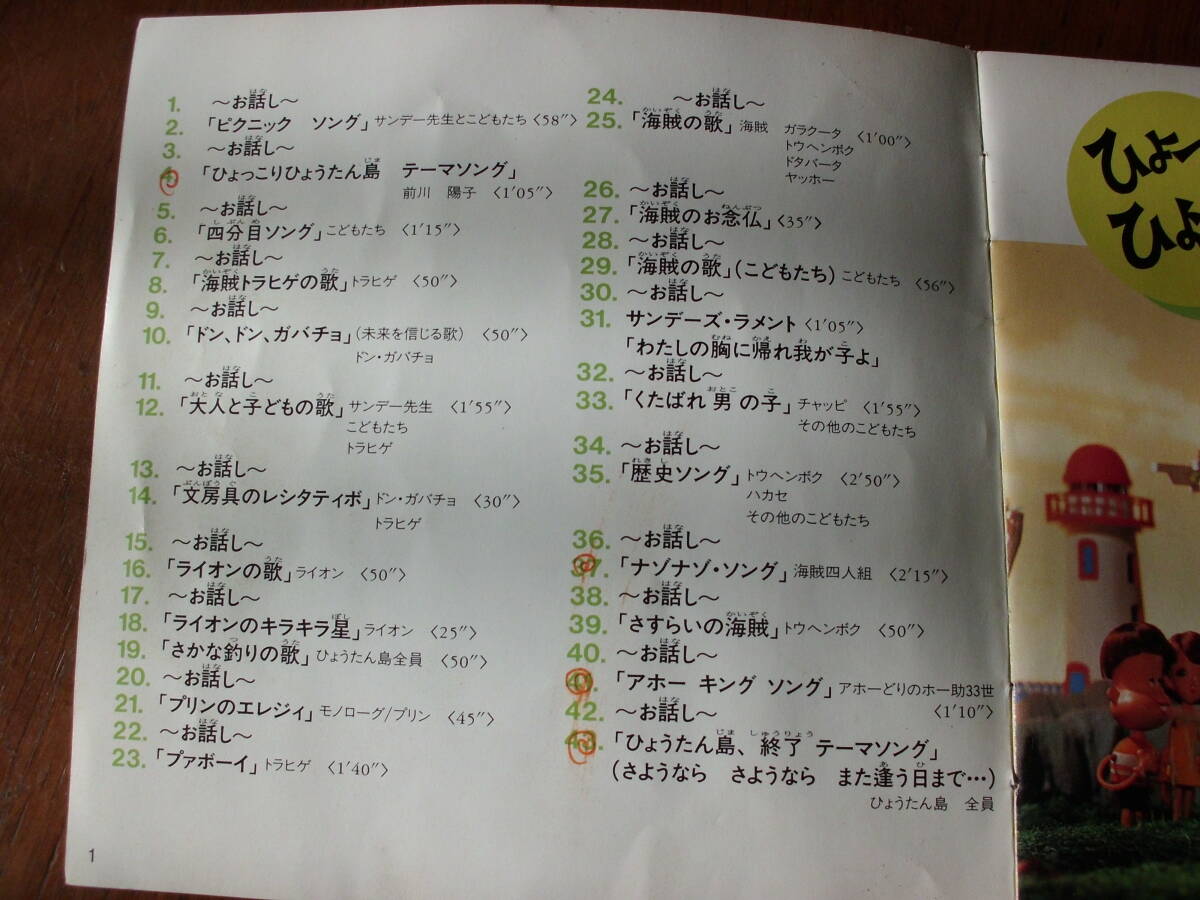 1. ～お話し～
2. 「ピクニック ソング」サンデー先生とこどもたち〈58″〉
3. ～お話し～
4. 「ひょっこりひょうたん島 テーマソング」
前川 陽子 〈1′05″〉
5. ～お話し～
6. 「四分目ソング」こどもたち 〈1′15″〉
7. ～お話し～
8. 「海賊トラヒゲの歌」トラヒゲ 〈50″〉
9. ～お話し～
10. 「ドン、ドン、ガバチョ」(未来を信じる歌) 〈50″〉
ドン・ガバチョ
11. ～お話し～
12. 「大人と子どもの歌」サンデー先生 〈1′55″〉
こどもたち
トラヒゲ
13. ～お話し～
14. 「文房具のレシタティボ」ドン・ガバチョ 〈30″〉
トラヒゲ
15. ～お話し～
16. 「ライオンの歌」ライオン 〈50″〉
17. ～お話し～
18. 「ライオンのキラキラ星」ライオン 〈25″〉
19. 「さかな釣りの歌」ひょうたん島全員 〈50″〉
20. ～お話し～
21. 「プリンのエレジィ」モノローグ/プリン 〈45″〉
22. ～お話し～
23. 「プァボーイ」トラヒゲ 〈1′40″〉
1
24. ～お話し～
25. 「海賊の歌」海賊 ガラクータ 〈1′00″〉
トウヘンボク
ドタバータ
ヤッホー
26. ～お話し～
27. 「海賊のお念仏」〈35″〉
28. ～お話し～
29. 「海賊の歌」(こどもたち)こどもたち 〈56″〉
30. ～お話し～
31. サンデーズ・ラメント〈1′05″〉
「わたしの胸に帰れ我が子よ」
32. ～お話し～
33. 「くたばれ男の子」チャッピ 〈1′55″〉
その他のこどもたち
34. ～お話し～
35. 「歴史ソング」トウヘンボク 〈2′50″〉
ハカセ
その他のこどもたち
36. ～お話し～
37. 「ナゾナゾ・ソング」海賊四人組 〈2′15″〉
38. ～お話し～
39. 「さすらいの海賊」トウヘンボク 〈50″〉
40. ～お話し～
41. 「アホー キング ソング」アホーどりのホー助33世
〈1′10″〉
42. ～お話し～
43. 「ひょうたん島、終了 テーマソング」
(さようなら さようなら また逢う日まで…)
ひょうたん島 全員
ひょ
ひょ